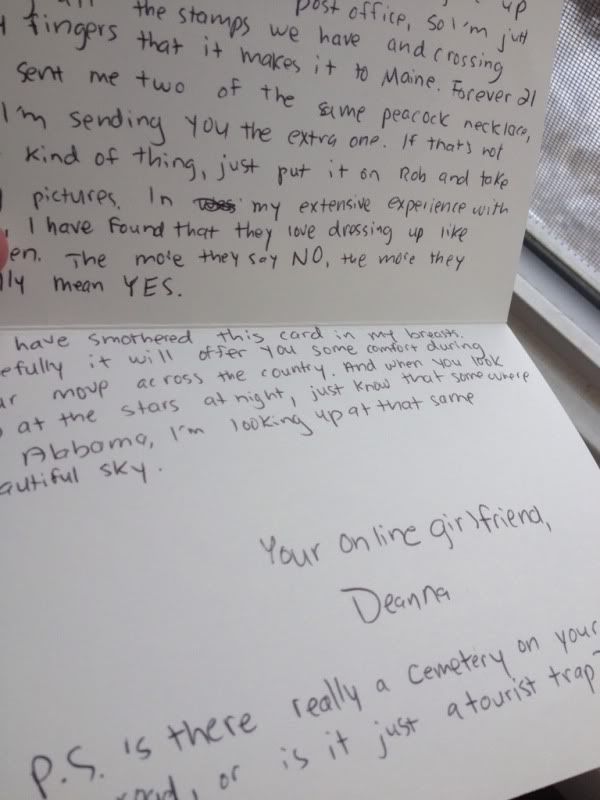 the stamps we have and crossing
post office, so I'm just
fingers that it makes it to Maine. Forever 21
sent me two of the same peacock necklace,
I'm sending you the extra one. If that's not
kind of thing, just put it on Rob and take
pictures. In my extensive experience with
, I have found that they love dressing up like
en. The more they say NO, the more they
lly mean YES.
have smothered this card in my breasts.
efully it will offer you some comfort during
ur move across the country. And when you look
at the stars at night, just know that somewhere
Alabama, I'm looking up at that same
autiful sky.
Your online girlfriend,
Deanna
P.S. is there really a cemetery on your
road, or is it just a tourist trap